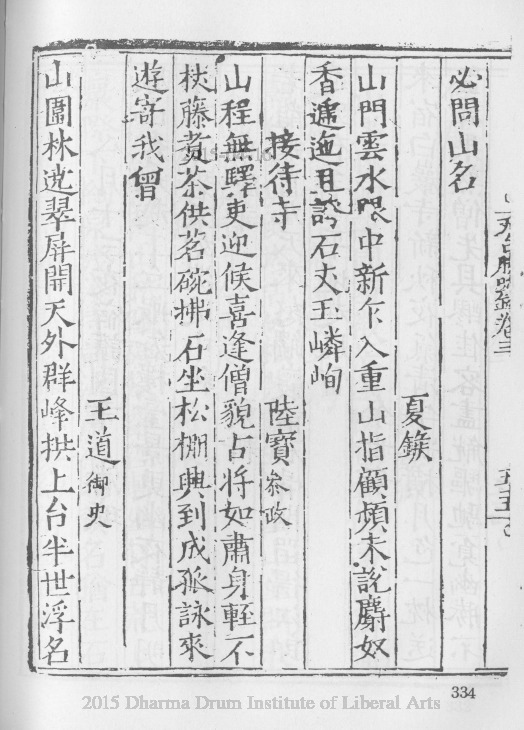 天台勝蹟錄卷三
必問山名
夏鍭
山門雲水眼中新乍入重山指顧頻未說麝奴
香遞迤且誇石丈玉嶙峋
接待寺
陸寶叅政
山程無驛吏迎候喜逢僧貌占將如肅身輕不
杖藤煑茶供茗碗拂石坐松棚興到成孤詠來
遊寄我曾
王道御史
山圍林遶翠屏開天外群峰拱上台半世浮名
334
2015 Dharma Drum Institute of Liberal Arts